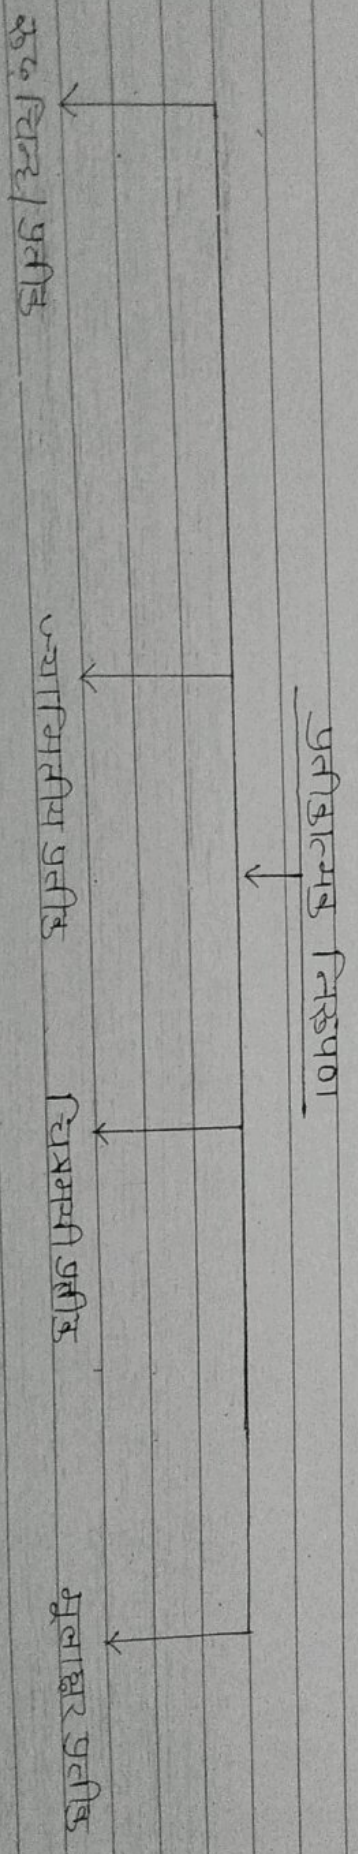 प्रतीकात्मक निरूपण
रूढ़ चिन्ह / प्रतीक
ज्यामितीय प्रतीक
चित्रमयी प्रतीक
मूलाक्षर प्रतीक